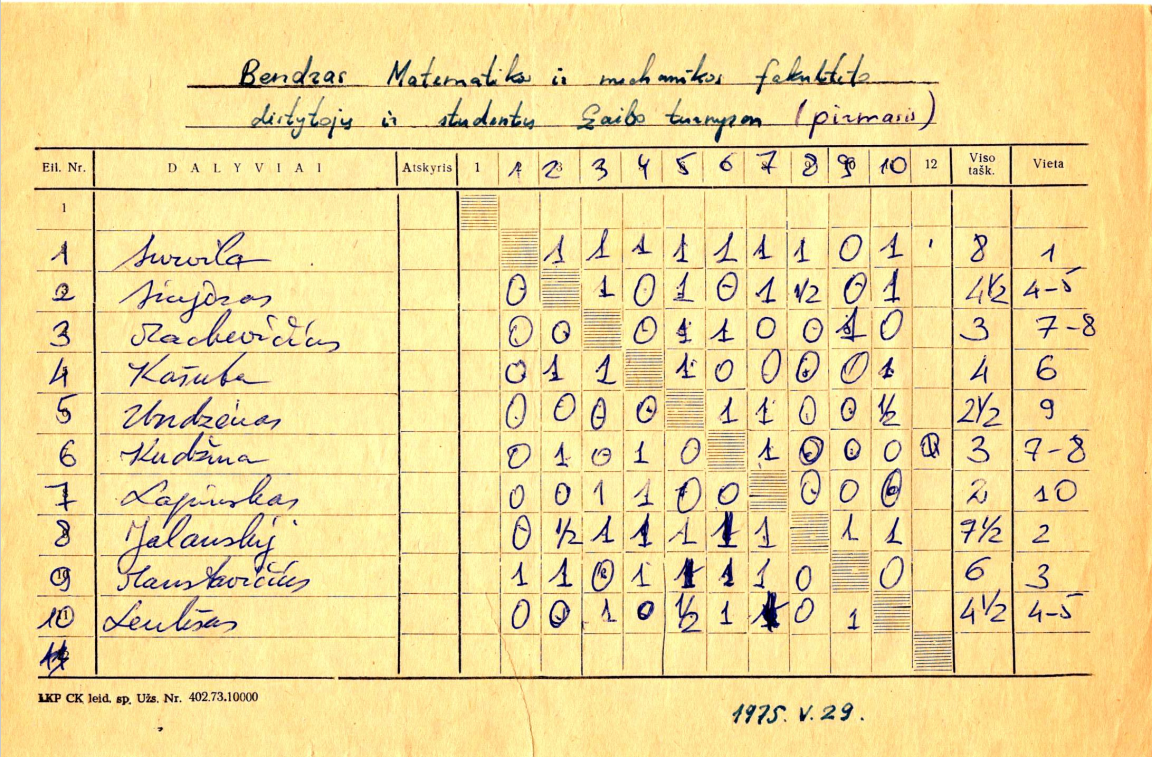 Bendras Matematikos ir mechanikos fakulteto
dėstytojų ir studentų žaibo turnyras (pirmasis)
Eil. Nr. DALYVIAI Atskyris 1 1 2 3 4 5 6 7 8 9 10 12 Viso tašk. Vieta
1
1 Survila 1 1 1 1 1 1 1 0 1 8 1
2 0 1 0 1 0 1 1/2 0 1 4 1/2 4-5
3 Mackevičius 0 0 0 1 1 0 0 1 0 3 7-8
4 Kašuba 0 1 1 1 0 0 0 0 1 4 6
5 0 0 0 0 1 1 0 0 1/2 2 1/2 9
6 Kudžma 0 1 0 1 0 1 0 0 0 3 7-8
7 Lapinskas 0 0 1 1 0 0 0 0 0 2 10
8 Jalanskij 0 1/2 1 1 1 1 1 1 1 7 1/2 2
9 Manstavičius 1 1 0 1 1 1 1 0 0 6 3
10 0 0 1 0 1/2 1 1 0 1 4 1/2 4-5
LKP CK leid. sp. Užs. Nr. 402.73.10000
1975. V. 29.